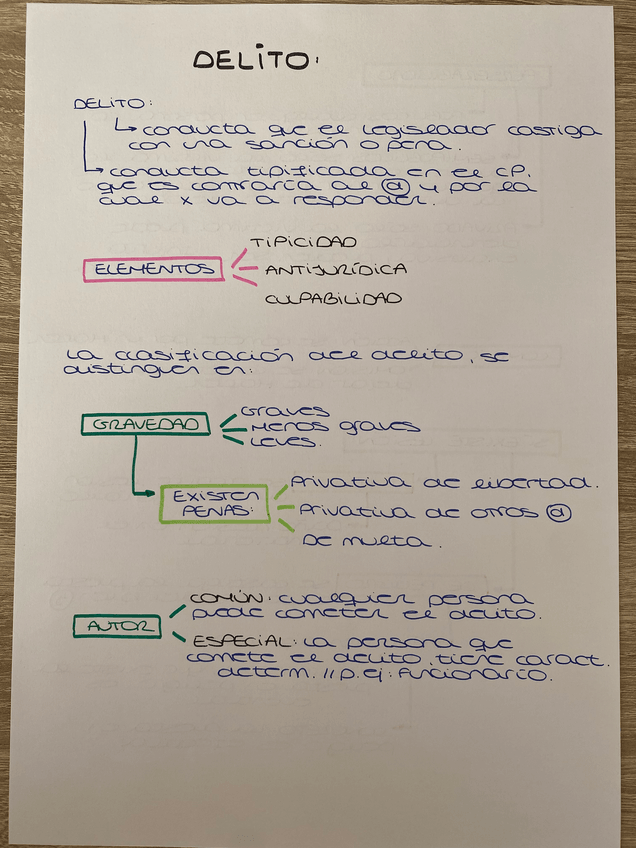 DELITO:
DELITO:
conducta que el legislador castiga
con una sanción o pena.
conducta tipificada en el CP.
que es contraria al @ y por la
cual x va a responder.
TIPICIDAD
ELEMENTOS
ANTIJURÍDICA
CULPABILIDAD
La clasificación del delito, se
distinguen en:
Graves
GRAVEDAD
Menos graves
Leves.
Privativa de libertad.
Existen
Penas:
Privativa de otros @
De multa.
COMÚN: cualquier persona
puede cometer el delito.
AUTOR
ESPECIAL: La persona que
comete el delito, tiene caract.
determ. // p.ej: Funcionario.